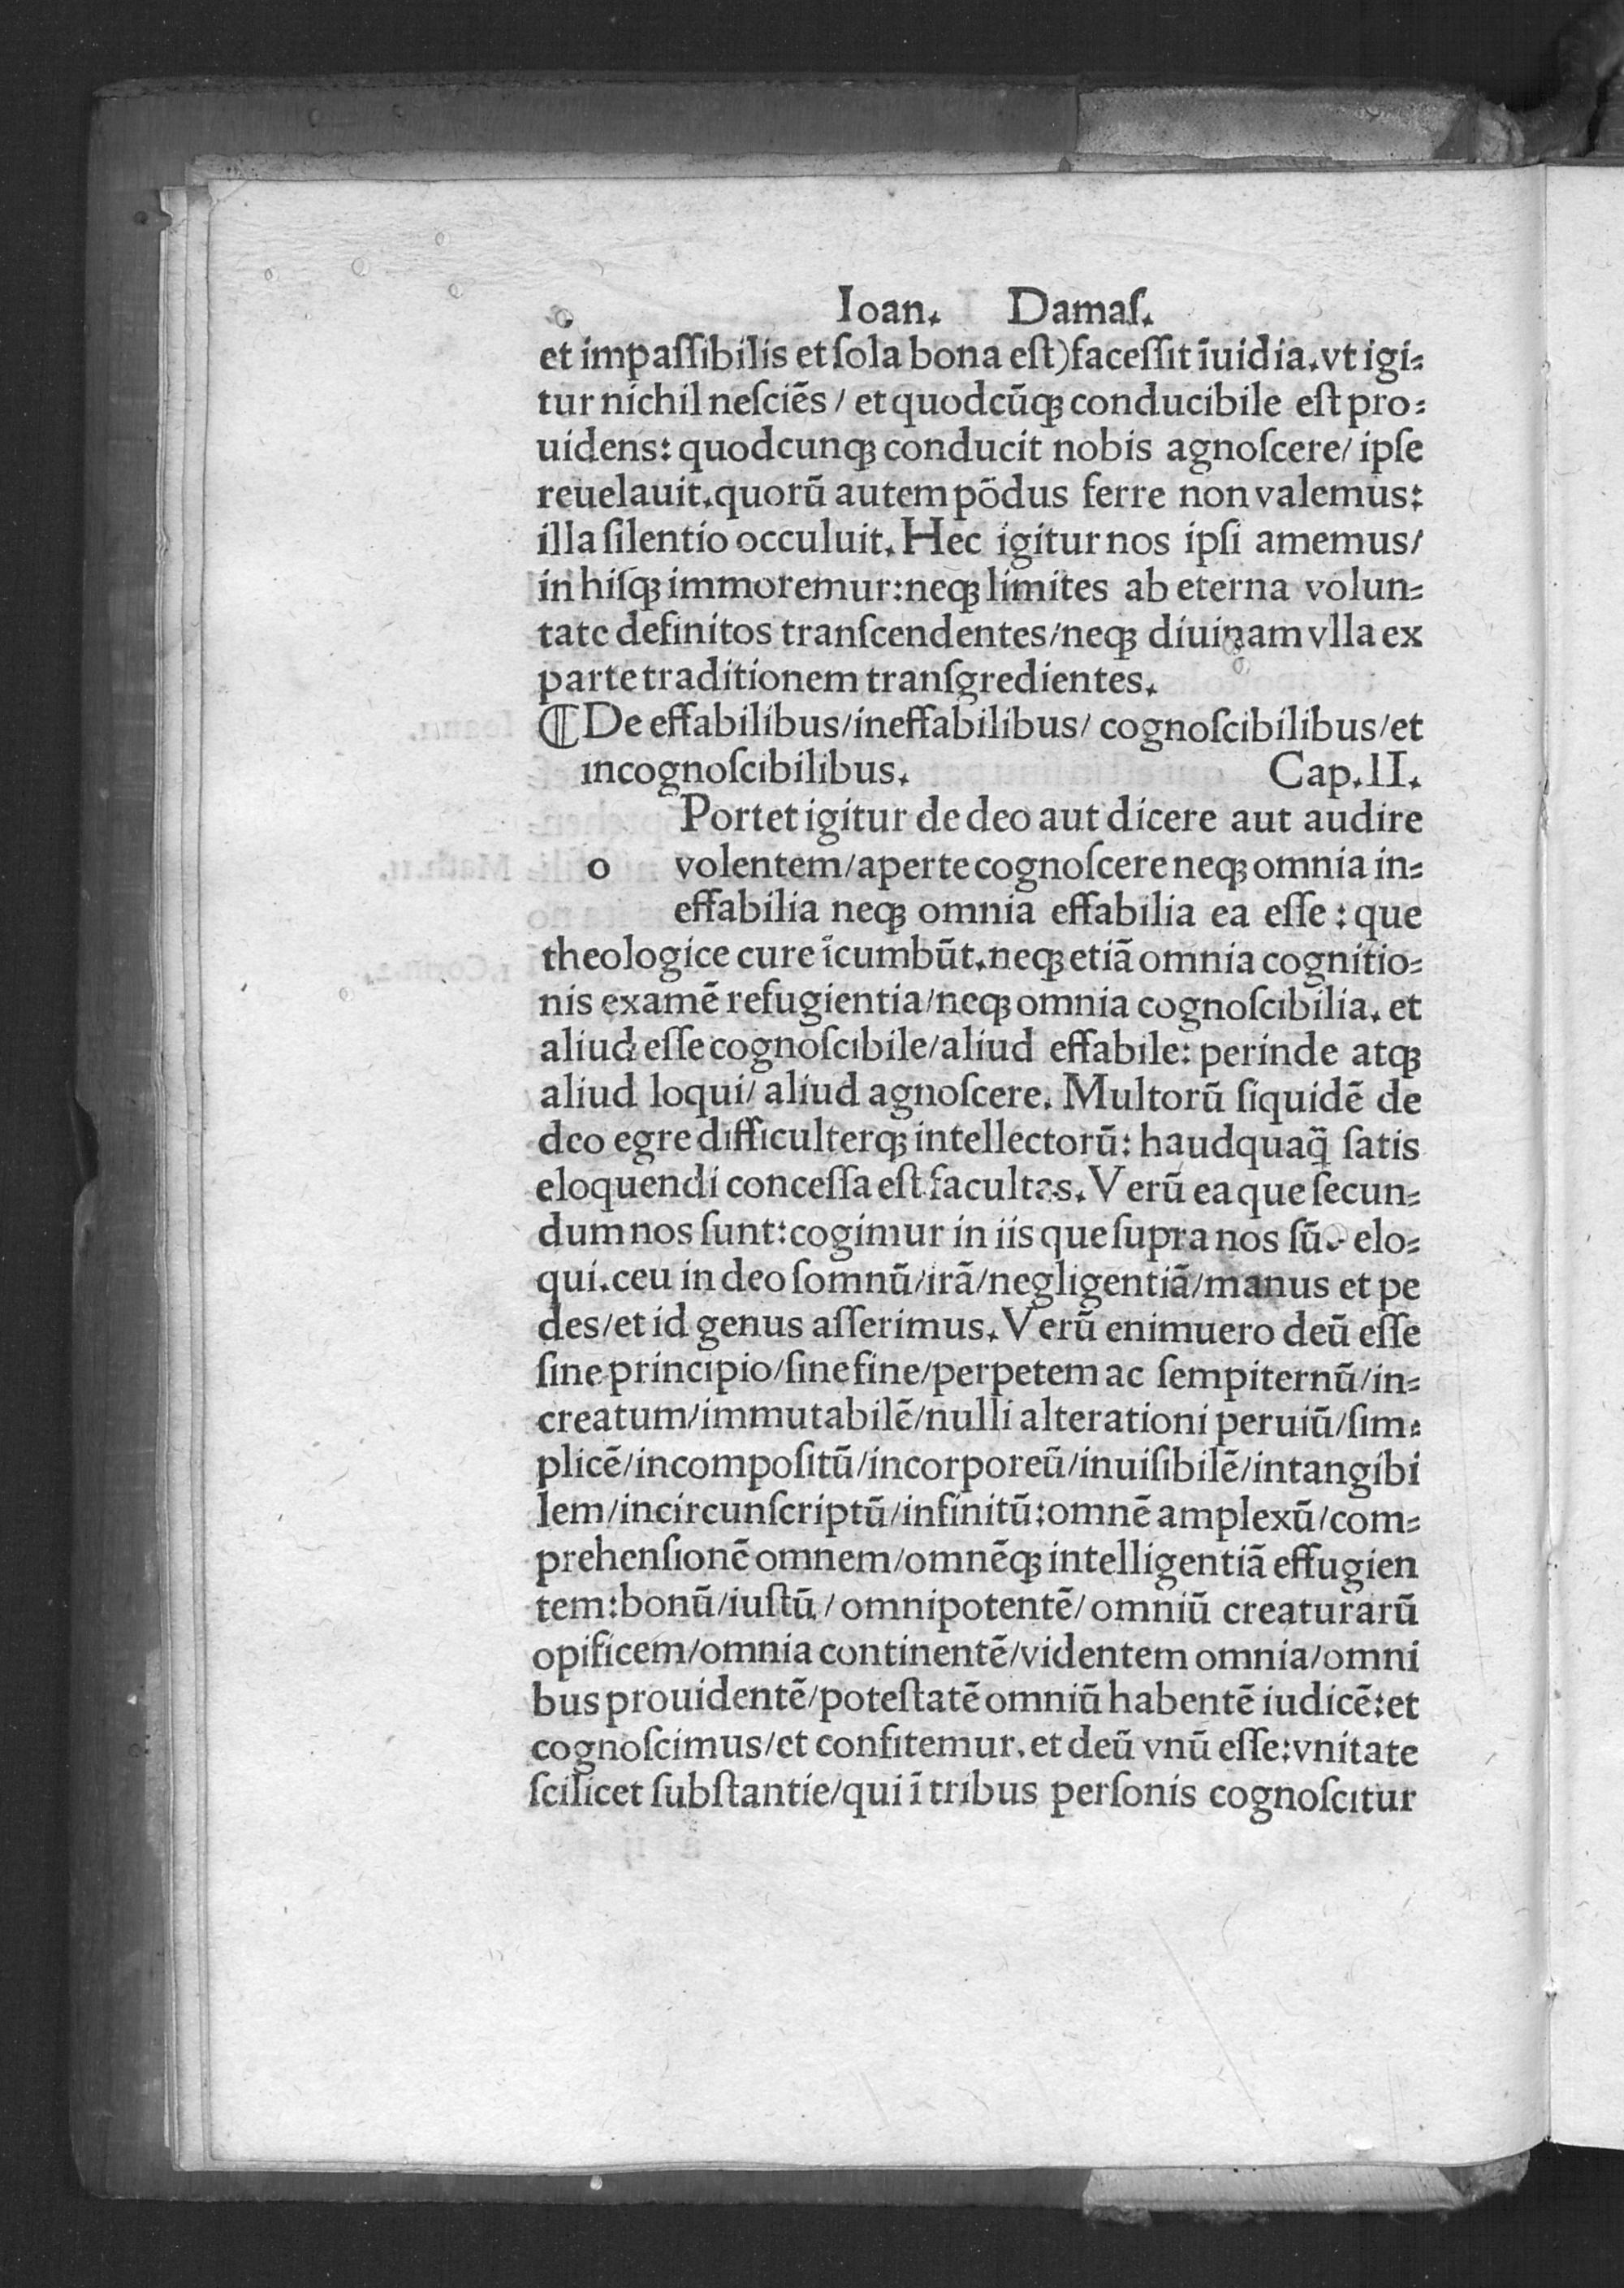 Ioan. Damaſ.
et impaſſibilis et ſola bona eſt) faceſſit īuidia. vt igi⸗
tur nichil neſciēs / et quodcūqꝫ conducibile eſt pro⸗
uidens: quodcunqꝫ conducit nobis agnoſcere/ ipſe
reuelauit. quorū autem pōdus ferre non valemus:
illa ſilentio occuluit. Hec igitur nos ipſi amemus/
in hiſqꝫ immoremur: neqꝫ limites ab eterna volun⸗
tate definitos tranſcendentes/ neqꝫ diuinam vlla ex
parte traditionem tranſgredientes.
⸿ De effabilibus/ ineffabilibus/ cognoſcibilibus/ et
incognoſcibilibus. Cap. II.
Portet igitur de deo aut dicere aut audire
o volentem/ aperte cognoſcere neqꝫ omnia in⸗
effabilia neqꝫ omnia effabilia ea eſſe: que
theologice cure īcumbūt. neqꝫ etiā omnia cognitio⸗
nis examē refugientia/ neqꝫ omnia cognoſcibilia. et
aliud eſſe cognoſcibile/ aliud effabile: perinde atqꝫ
aliud loqui/ aliud agnoſcere. Multorū ſiquidē de
deo egre difficulterqꝫ intellectorū: haudquaq̄ ſatis
eloquendi conceſſa eſt facultas. Verū ea que ſecun⸗
dum nos ſunt: cogimur in iis que ſupra nos ſūt elo⸗
qui. ceu in deo ſomnū/ irā/ negligentiā/ manus et pe
des/ et id genus aſſerimus. Verū enimuero deū eſſe
ſine principio/ ſine fine/ perpetem ac ſempiternū/ in⸗
creatum/ immutabilē/ nulli alterationi peruiū/ ſim⸗
plicē/ incompoſitū/ incorporeū/ inuiſibilē/ intangibi
lem/ incircunſcriptū/ infinitū: omnē amplexū/ com⸗
prehenſionē omnem/ omnēqꝫ intelligentiā effugien
tem: bonū/ iuſtū/ omnipotentē/ omniū creaturarū
opificem/ omnia continentē/ videntem omnia/ omni
bus prouidentē/ poteſtatē omniū habentē iudicē: et
cognoſcimus/ et confitemur. et deū vnū eſſe: vnitate
ſcilicet ſubſtantie/ qui ī tribus perſonis cognoſcitur